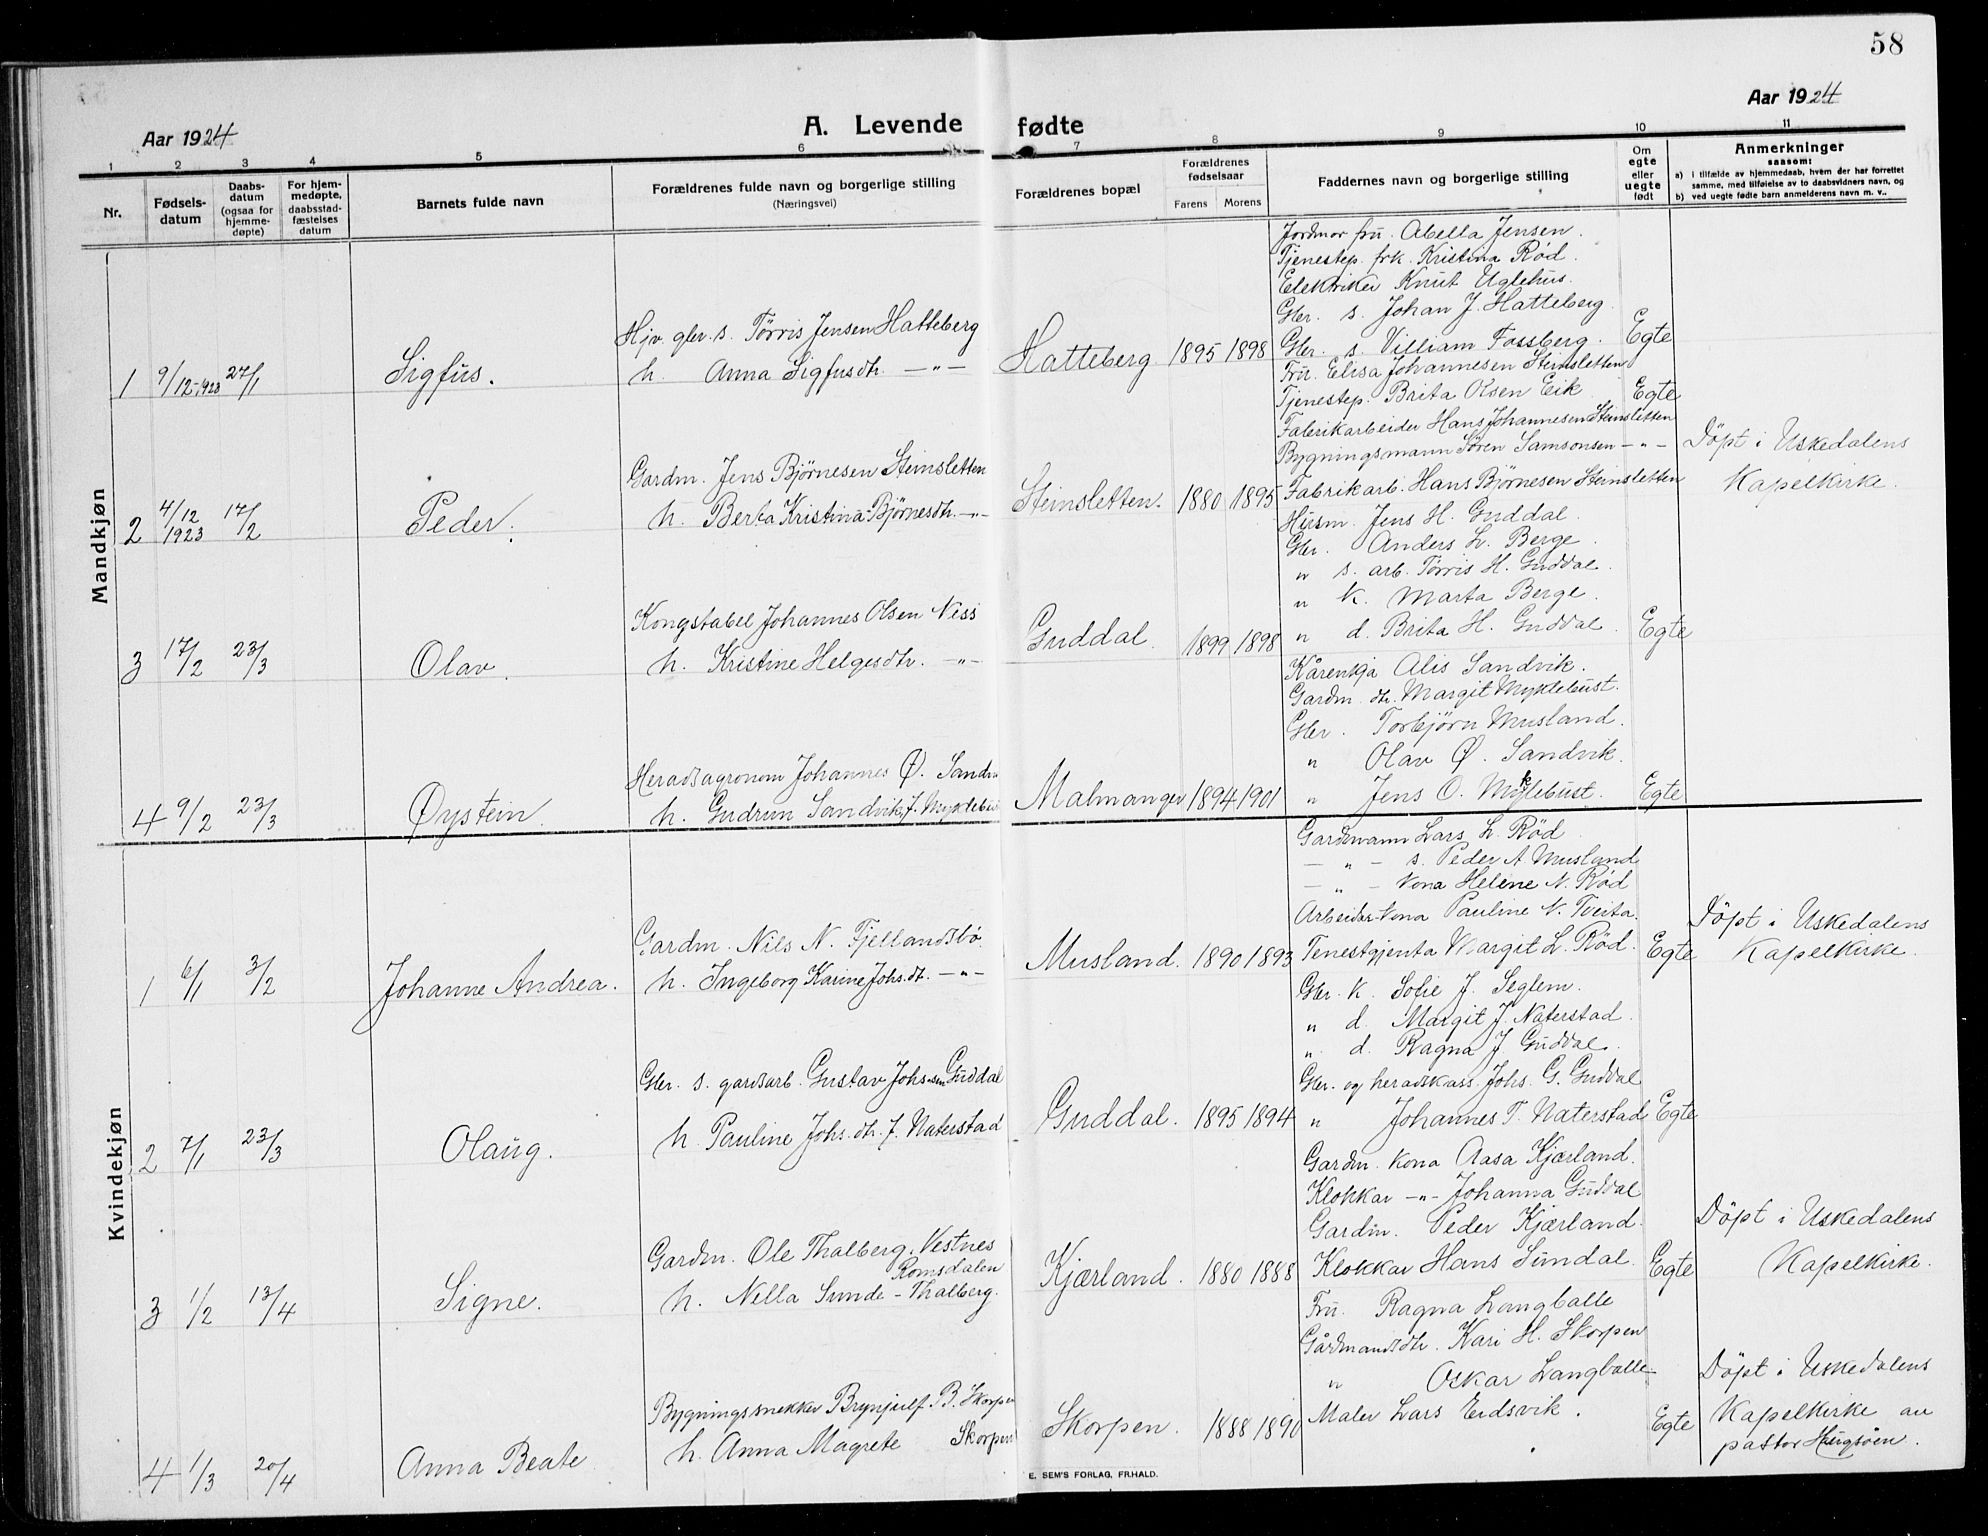 58
Aar 1924
A. Levende fødte
Aar 1924
1 2 3 4 5 6 7 8 9 10 11
Nr.
Fødsels-
datum
Daabs-
datum
(ogsaa for
hjemme-
døpte)
For hjem-
medøpte,
daabsstad-
fæstelses
datum
Barnets fulde navn
Forældrenes fulde navn og borgerlige stilling
(Næringsvei)
Forældrenes bopæl
Forældrenes
fødselsaar
Farens Morens
Faddernes navn og borgerlige stilling
Om
egte
eller
uegte
født
Anmerkninger
saasom:
a) i tilfælde av hjemmedaab, hvem der har forrettet
samme, med tilføielse av to daabsvidners navn, og
b) ved uegte fødte barn anmelderens navn m. v..
Mandkjøn
1 9/12-,923 27/1 Sigfus.
Hjv. gbr. s. Tørris Jensen Hatteberg
h. Anna Sigfusdtr. —„—
Hatteberg 1895 1898
Jordmor fru. Abella Jensen.
Tjenestep. frk. Kristina Rød.
Elektriker Knut Uglehus.
Gbr. s. Johan J. Hatteberg.
Gbr. s. Villiam Fossberg. Egte
Fru. Elisa Johannesen Steinsletten
Tjenestep. Brita Olsen Eik Egte
Fabrikarbeider Hans Johannesen Steinsletten
Bygningsmann Søren Samsonsen —„—
Fabrikarb. Hans Bjørnesen Steinsletten
2 4/12 1923 17/2 Peder.
Gardm. Jens Bjørnesen Steinsletten
h. Berta Kristina Bjørnesdtr. —„—
Steinsletten. 1880 1895
Döpt i Uskedalens
Kapelkirke.
3 17/2 23/3 Olav.
Kongstabel Johannes Olsen Ness
h. Kristine Helgesdtr. —„—
Guddal. 1899 1898
Husm. Jens H. Guddal
Gbr. Anders L. Berge.
„ s. arb. Tørris H. Guddal.
„ k. Marta Berge.
„ d. Brita H. Guddal. Egte
4 9/2 23/3 Øystein.
Heradsagronom Johannes Ø. Sandv
h. Gudrun Sandvik, f. Myklebus
Malmanger 1894 1901
Alis Sandvik.
Gardm. dtr. Margit Myklebust.
Gbr. Torbjørn Musland.
„ Olav Ø. Sandvik.
„ Jens O. Myklebust. Egte
Kvindekjøn
1 6/1 3/2 Johanne Andrea.
Gardm. Nils N. Fjellandsbö.
h. Ingeborg Karine Johs.dt. —„—
Musland. 1890 1893
Gardmann Lars L. Rød
—„— s. Peder A Musland
—„— kona Helene N. Rød
Arbeidar-kona Pauline N. Tveita.
Tenestgjenta Margit L. Rød. Egte
Döpt i Uskedalens
Kapelkirke.
2 7/1 23/3 Olaug.
Gbr. s. gardsarb. Gustav Johs-sen Guddal
h. Pauline Johs. dtr. f. Naterstad
Guddal. 1895 1894
Gbr. k. Sofie J. Seglem.
„ d. Margit J. Naterstad.
„ d. Ragna J Guddal.
Gbr. og heradskass. Johs. G. Guddal
„ Johannes T. Naterstad Egte
3 1/2 13/4 Signe.
Gardm. Ole Thalberg, Vestnes
Romsdalen
h. Nella Sunde - Thalberg.
Kjærland. 1880 1888
Gardm. kona Aasa Kjærland.
Klokkar —„— Johanna Guddal
Gardm. Peder Kjærland.
Klokkar Hans Sundal. Egte
Döpt i Uskedalens
Kapelkirke.
4 1/3 20/4 Anna Beate
Bygningssnekker Brynjulf B. Skorpen
h. Anna Magrete Skorpen
Skorpen. 1888 1890
Fru. Ragna Langballe
Gårdmandsdtr. Kari H. Skorpen
„ Oskar Langballe
Maler Lars Eidsvik. Egte
Döpt i Uskedalens
Kapelkirke av
pastor Haugsøen.
E. SEM'S FORLAG, FR.HALD.